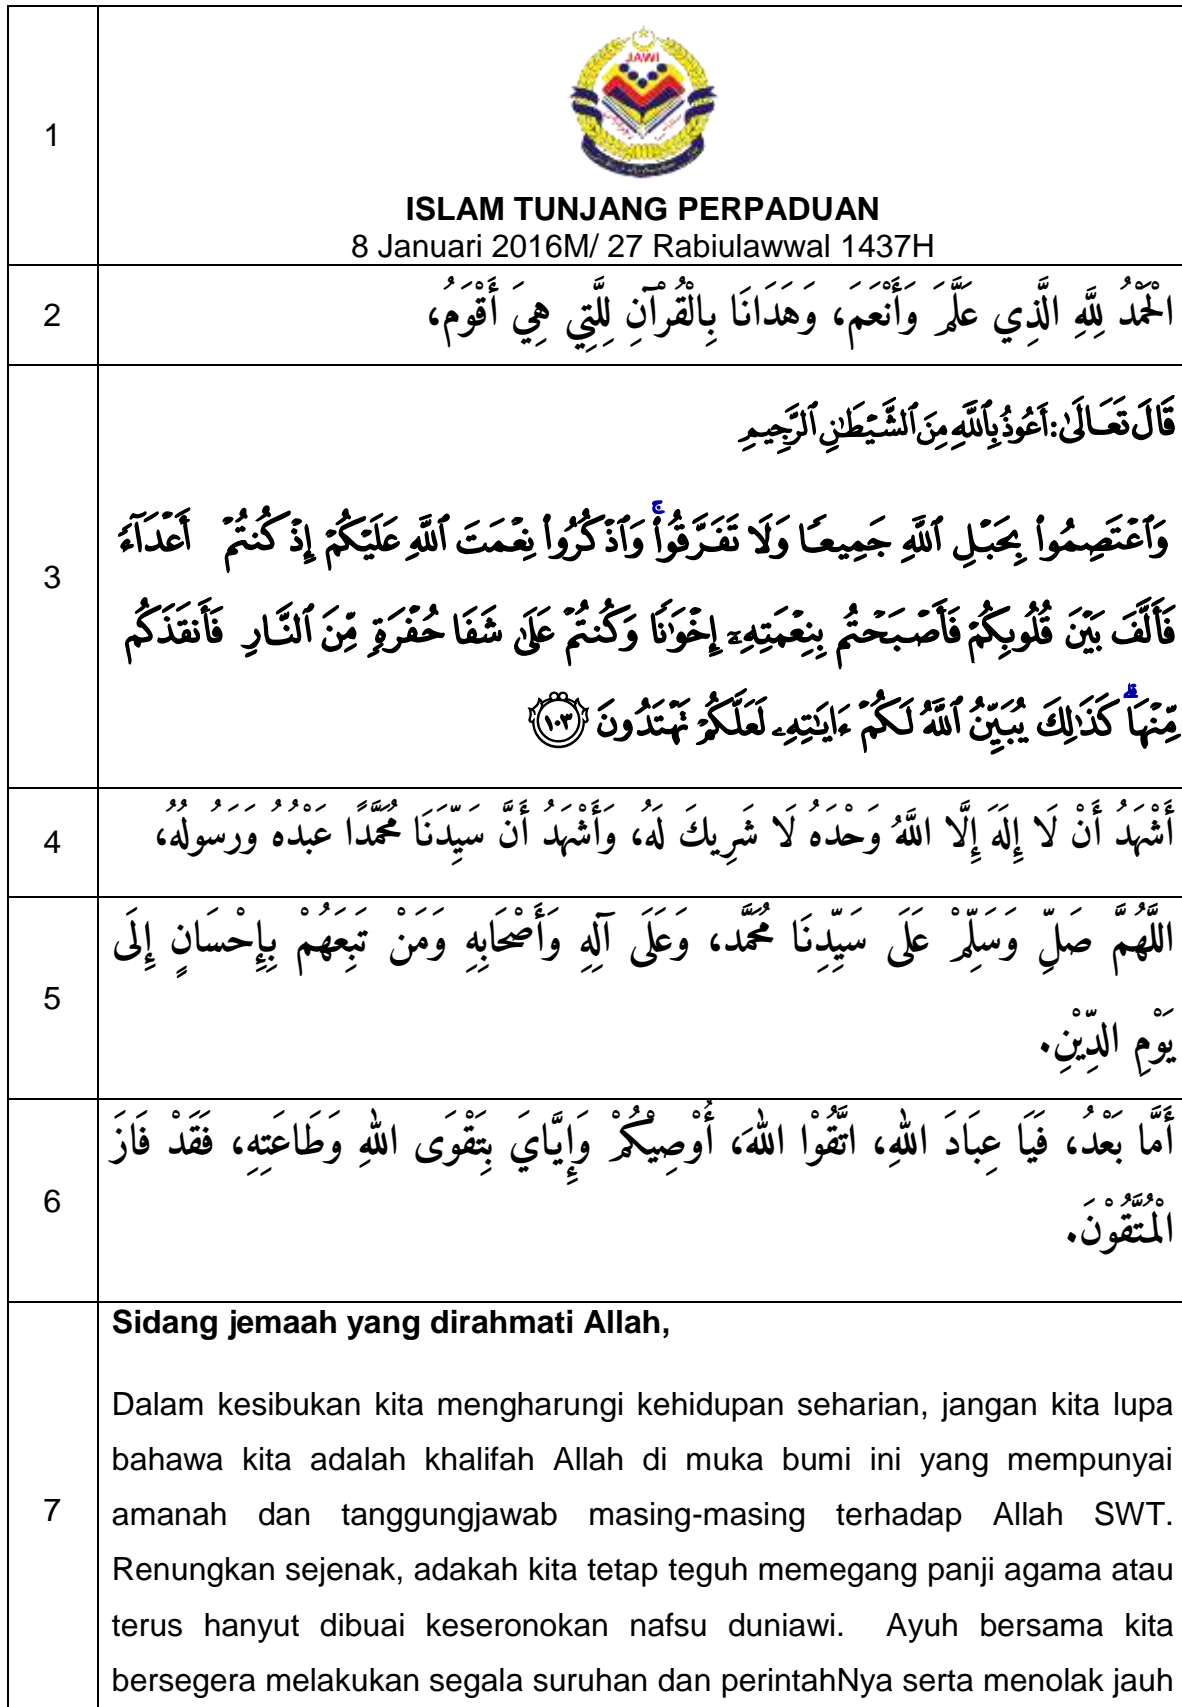 1
JAWI
ISLAM TUNJANG PERPADUAN
8 Januari 2016M/ 27 Rabiulawwal 1437H
2
الْحَمْدُ لِلَّهِ الَّذِي عَلَّمَ وَأَنْعَمَ، وَهَدَانَا بِالْقُرْآنِ لِلَّتِي هِيَ أَقْوَمُ،
3
قَالَ تَعَالَىٰ: أَعُوذُ بِٱللَّهِ مِنَ ٱلشَّيْطَٰنِ ٱلرَّجِيمِ
وَٱعْتَصِمُوا۟ بِحَبْلِ ٱللَّهِ جَمِيعًا وَلَا تَفَرَّقُوا۟ ۚ وَٱذْكُرُوا۟ نِعْمَتَ ٱللَّهِ عَلَيْكُمْ إِذْ كُنتُمْ أَعْدَآءً
فَأَلَّفَ بَيْنَ قُلُوبِكُمْ فَأَصْبَحْتُم بِنِعْمَتِهِۦٓ إِخْوَٰنًا وَكُنتُمْ عَلَىٰ شَفَا حُفْرَةٍ مِّنَ ٱلنَّارِ فَأَنقَذَكُم
مِّنْهَا ۗ كَذَٰلِكَ يُبَيِّنُ ٱللَّهُ لَكُمْ ءَايَٰتِهِۦ لَعَلَّكُمْ تَهْتَدُونَ ١٠٣
4
أَشْهَدُ أَنْ لَا إِلَهَ إِلَّا اللَّهُ وَحْدَهُ لَا شَرِيكَ لَهُ، وَأَشْهَدُ أَنَّ سَيِّدَنَا مُحَمَّدًا عَبْدُهُ وَرَسُولُهُ،
5
اللَّهُمَّ صَلِّ وَسَلِّمْ عَلَى سَيِّدِنَا مُحَمَّد، وَعَلَى آلِهِ وَأَصْحَابِهِ وَمَنْ تَبِعَهُمْ بِإِحْسَانٍ إِلَى
يَوْمِ الدِّيْنِ.
6
أَمَّا بَعْدُ، فَيَا عِبَادَ اللهِ، اتَّقُوْا اللهَ، أُوْصِيْكُمْ وَإِيَّايَ بِتَقْوَى اللهِ وَطَاعَتِهِ، فَقَدْ فَازَ
الْمُتَّقُوْنَ.
7
Sidang jemaah yang dirahmati Allah,
Dalam kesibukan kita mengharungi kehidupan seharian, jangan kita lupa
bahawa kita adalah khalifah Allah di muka bumi ini yang mempunyai
amanah dan tanggungjawab masing-masing terhadap Allah SWT.
Renungkan sejenak, adakah kita tetap teguh memegang panji agama atau
terus hanyut dibuai keseronokan nafsu duniawi. Ayuh bersama kita
bersegera melakukan segala suruhan dan perintahNya serta menolak jauh